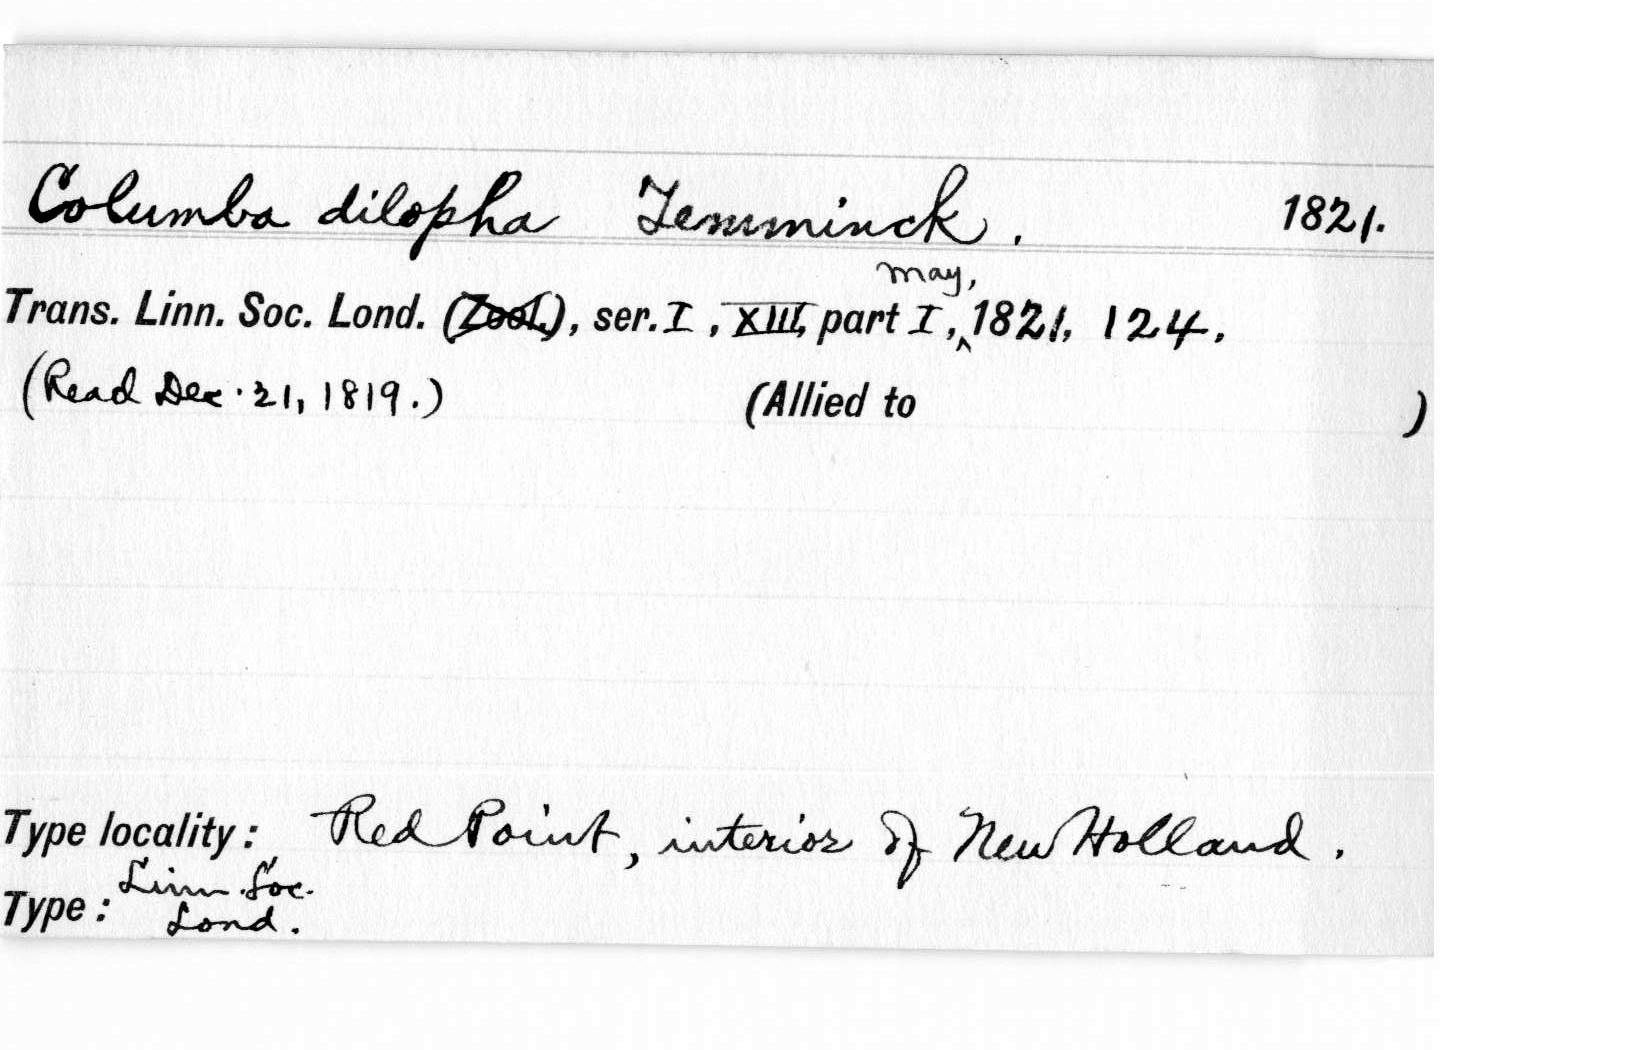 Columba dilopha Temminck. 1821.
Trans. Linn. Soc. Lond. (Zool.), ser. I, XIII, part I, May, 1821, 124.
(Read Dec. 21, 1819.) (Allied to )
Type locality: Red Point, interior of New Holland.
Type: Linn. Soc.
Lond.